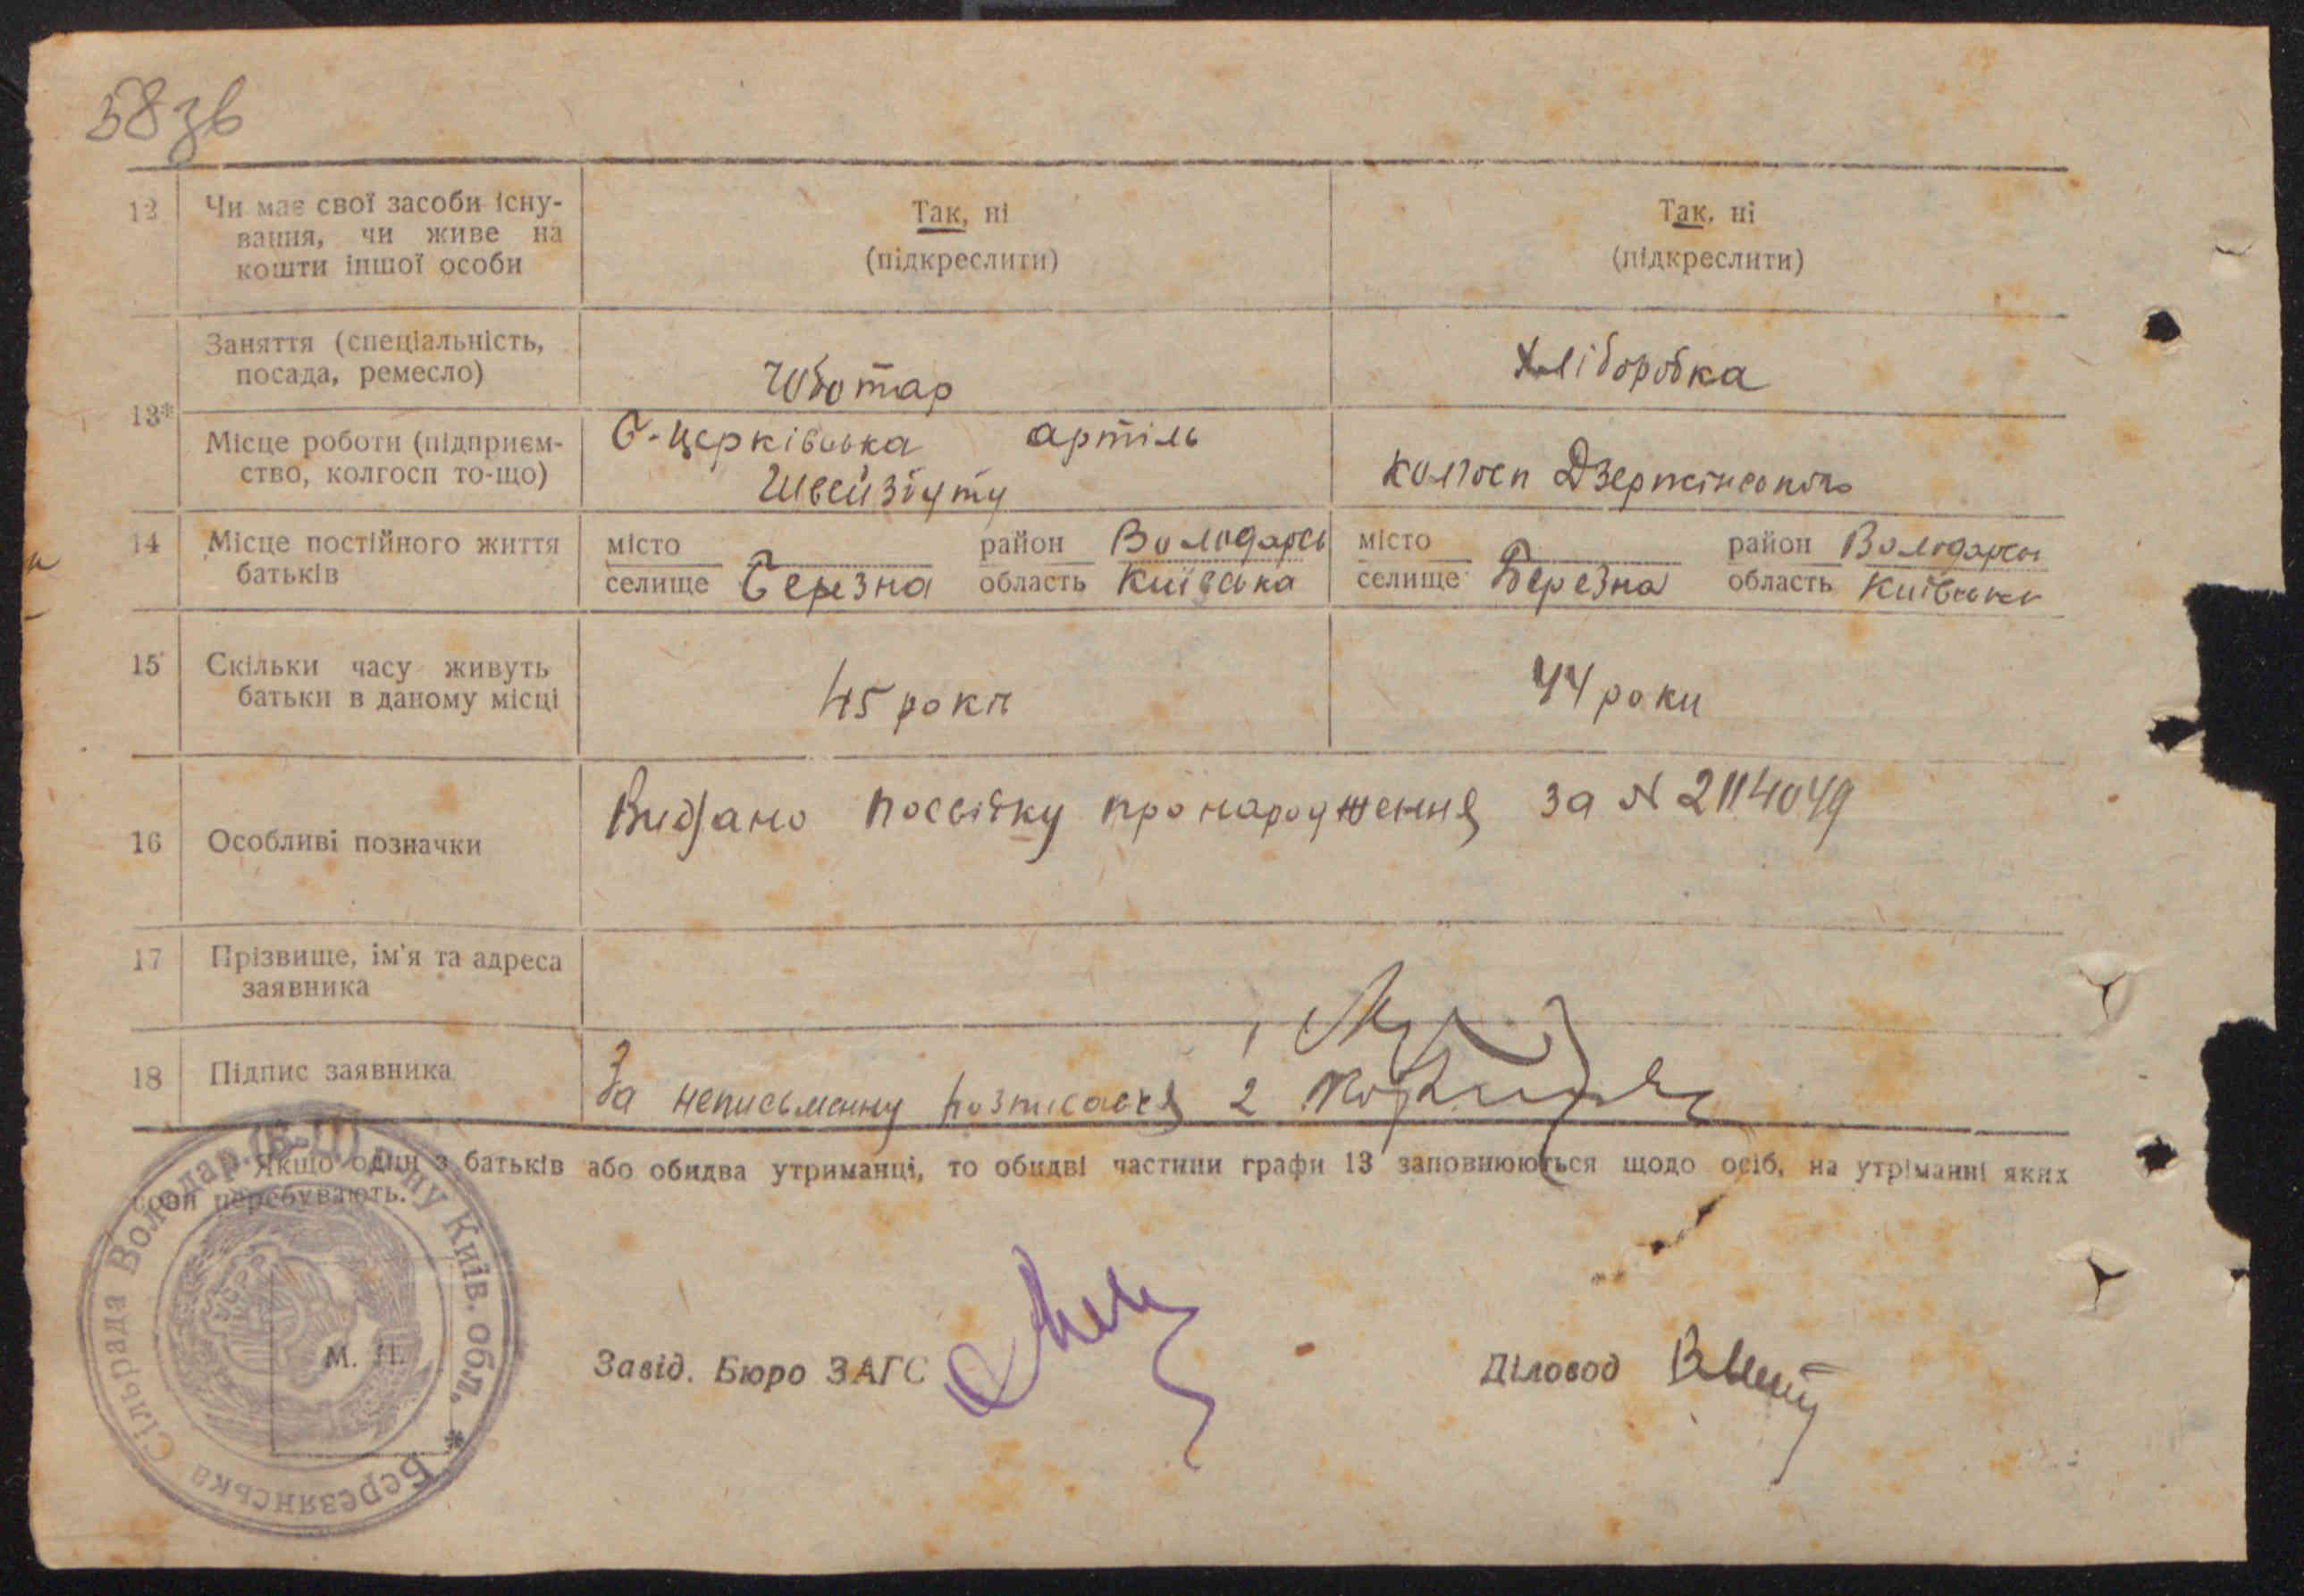 58 зв
12 Чи має свої засоби існу-
вання, чи живе на
кошти іншої особи
Так, ні
(підкреслити)
Так, ні
(підкреслити)
13*
Заняття (спеціальність,
посада, ремесло)
Чоботар
Хліборобка
Місце роботи (підприєм-
ство, колгосп то-що)
Б-Церківська артіль
Швейвзуту
колгосп Дзержінського
14 Місце постійного життя
батьків
місто
селище Березна
район Володарсь
область Київська
місто
селище Березна
район Володарсь
область Київська
15 Скільки часу живуть
батьки в даному місці
45 років
44 роки
16 Особливі позначки
Видано посвідку про народження за № 2114049
17 Прізвище, ім'я та адреса
заявника
18 Підпис заявника
За неписьменну розписався 2
Якщо один з батьків або обидва утриманці, то обидві частини графи 13 заповнюються щодо осіб, на утріманні яких
вони перебувають.
Березянська Сільрада Володар. (Б-Ц) р-ну Київ. обл. *
УСРР
М. П.
Завід. Бюро ЗАГС
Діловод